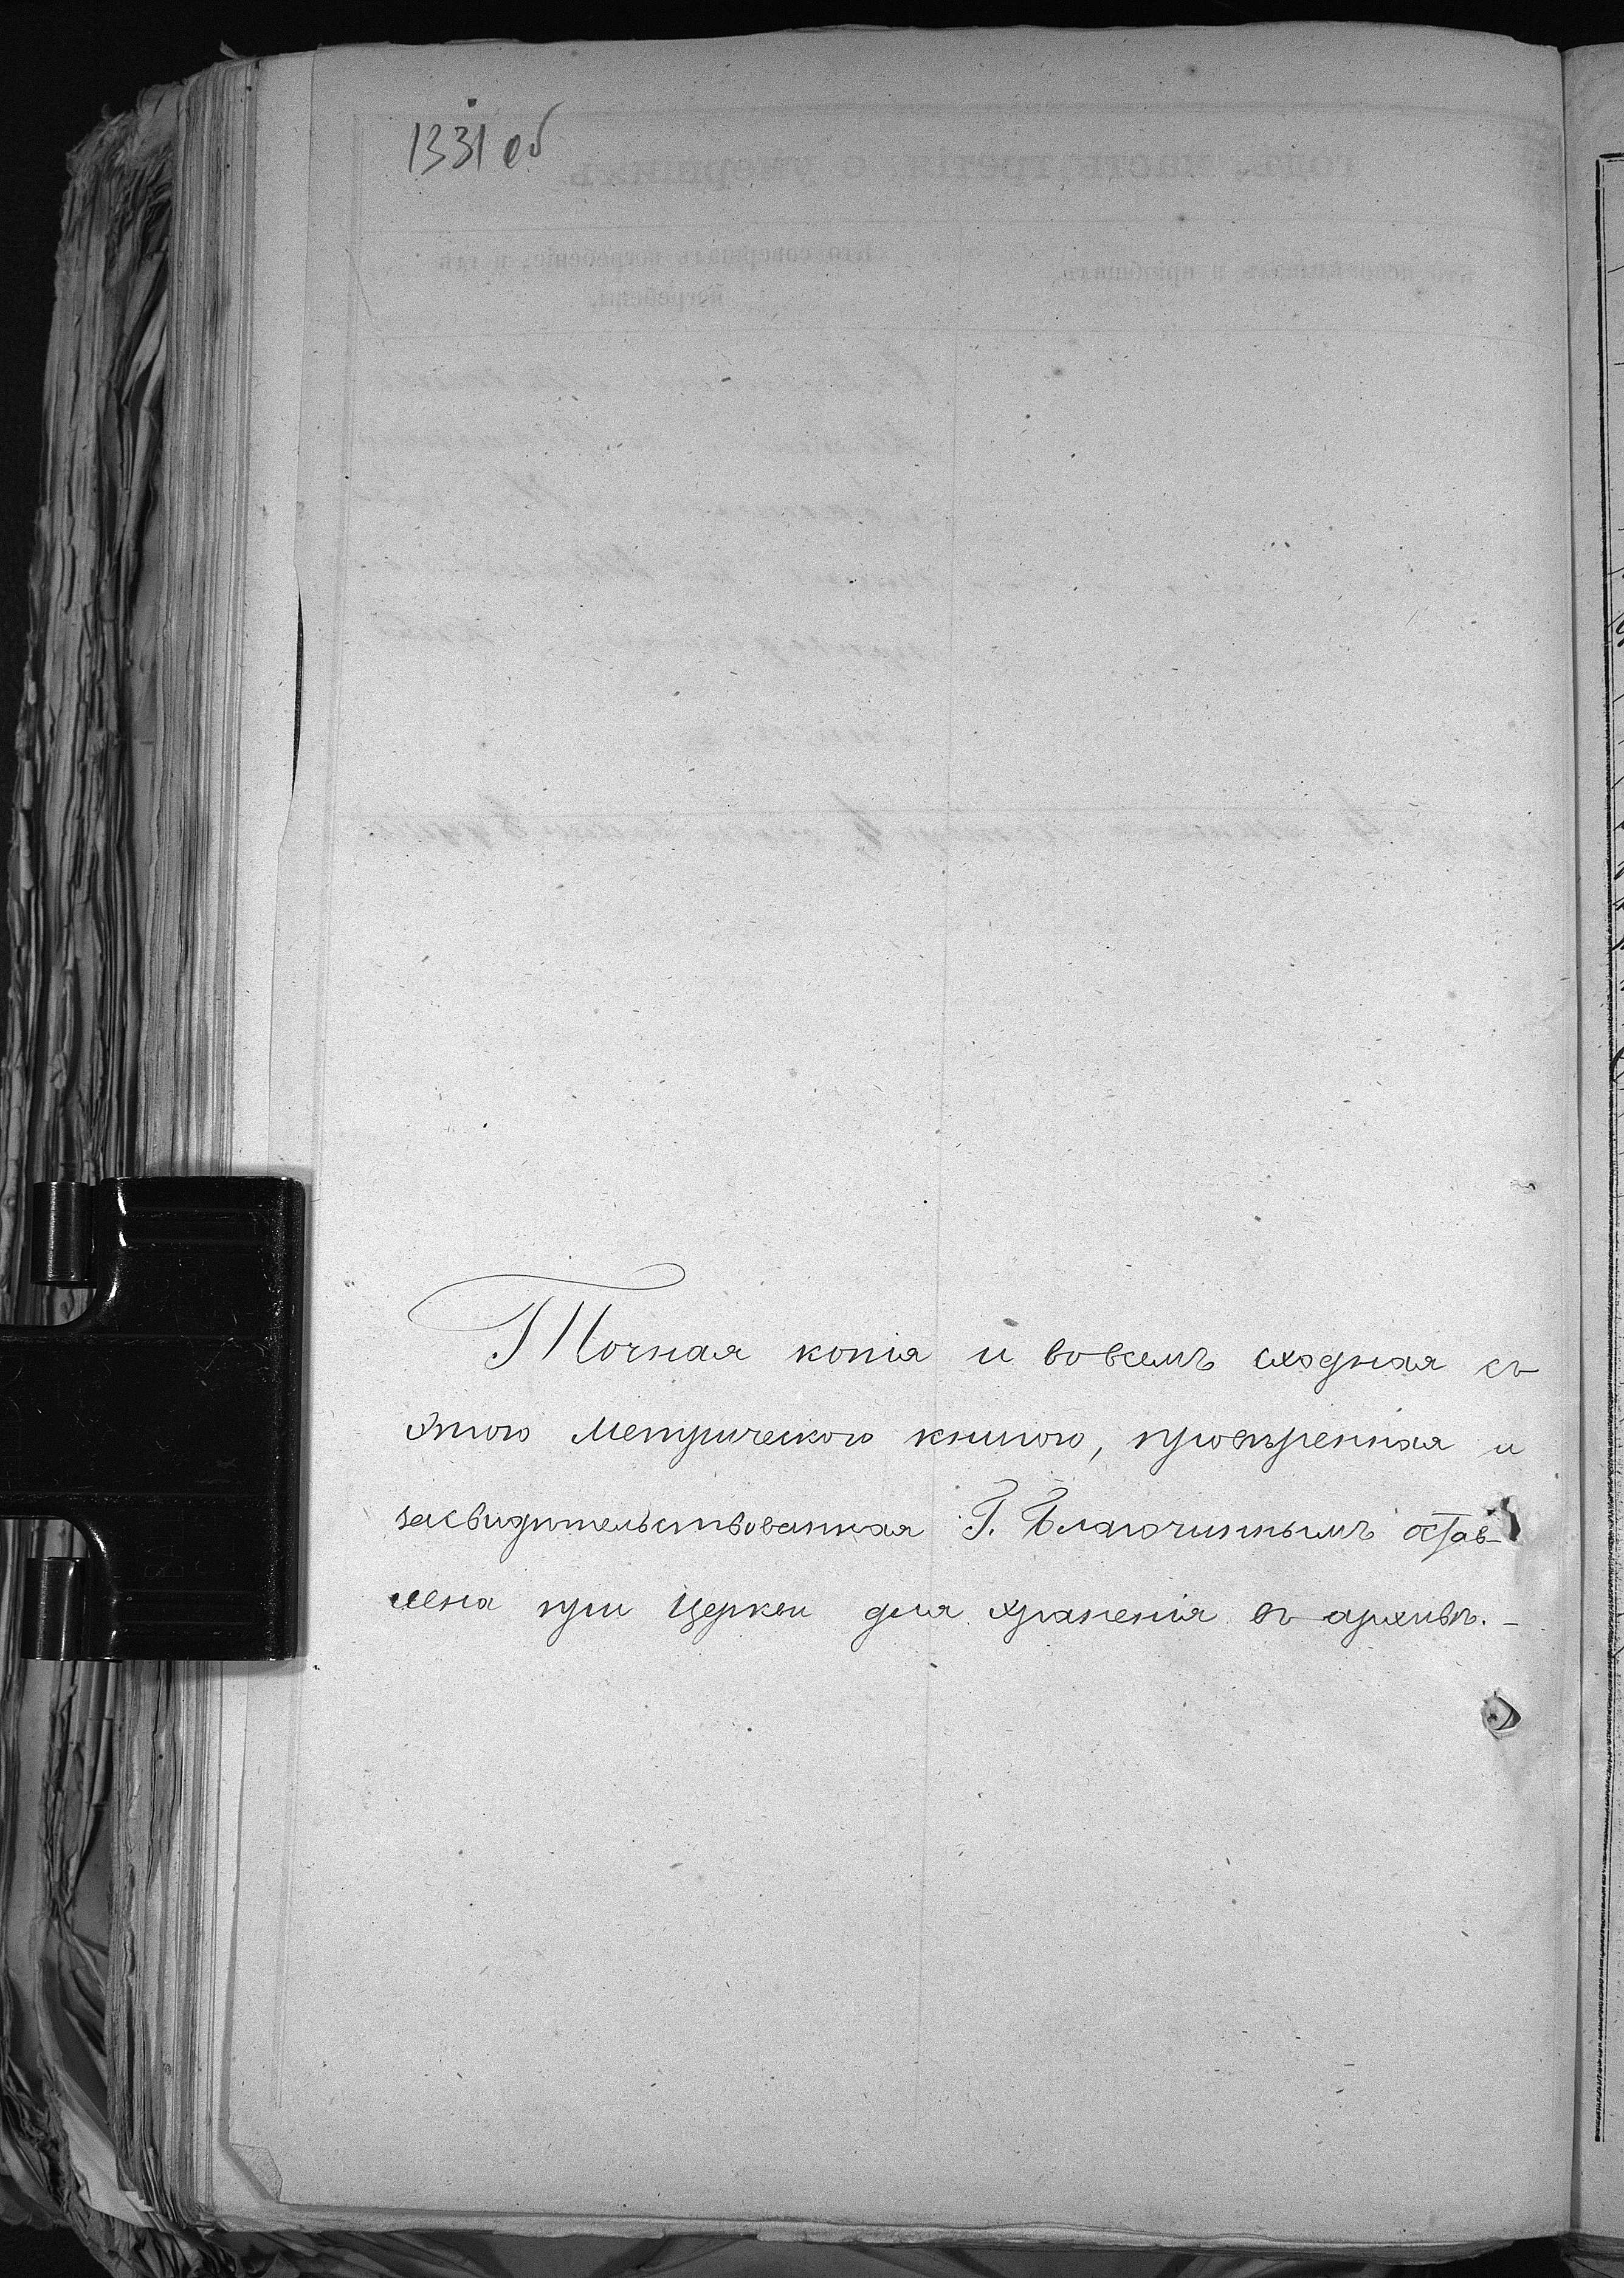 1331 об
Точная копія и вовсемъ сходная съ
этою Метрическою книгою, провѣренная и
засвидѣтельствованная Г. Благочиннымъ остав-
лена при Церкви для храненія въ архивѣ.-